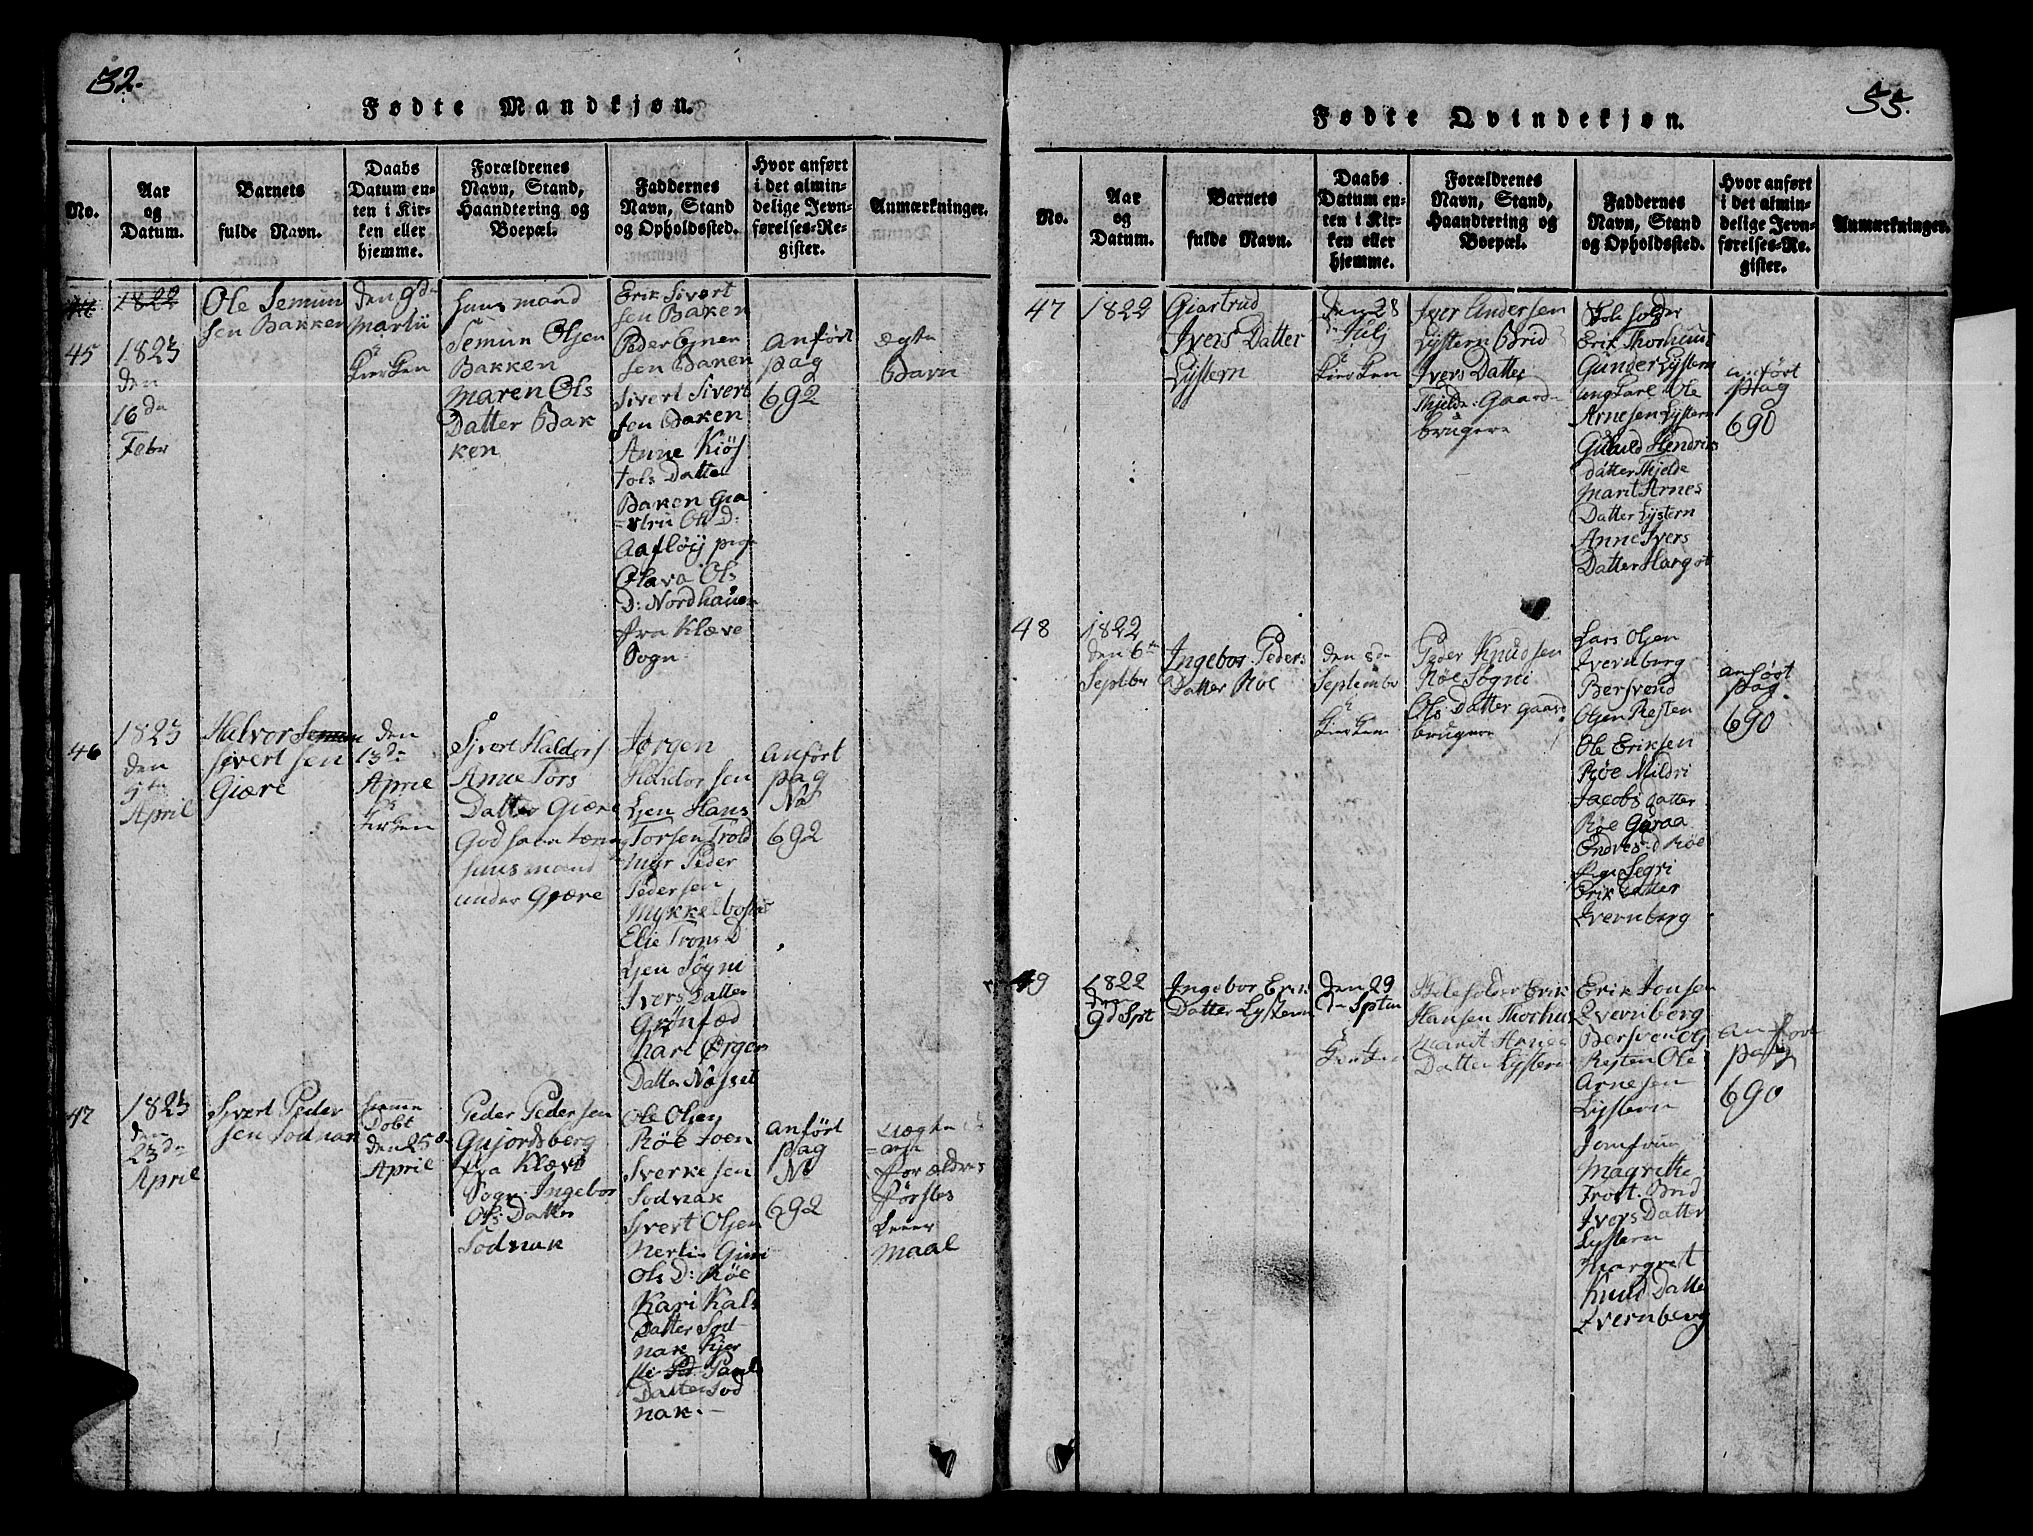 32.
Fødte Mandkjøn.
No.
Aar
og
Datum.
Barnets
fulde Navn.
Daabs
Datum en-
ten i Kir-
ken eller
hjemme.
Forældrenes
Navn, Stand,
Haandtering og
Boepæl.
Faddernes
Navn, Stand
og Opholdssted.
Hvor anført
i det almin-
delige Jevn-
førelses-Re-
gister.
Anmærkninger.
1822
45
1823
den
16 da
Febr
Ole Semun
sen Bakken
den 9 da
Martii
Kirken
Huusmand
Semun Olsen
Bakken
Maren Ols
Datter Bak
ken
Erik Sivert
sen Baken
Peder Ejnen
sen Baken
Sivert Sivert
sen Baken
Anne Kiøs
tols Datter
Baken Gia
Ols D:
Aafløÿ pige
Olava Ols
D: Nordhaue
fra Klæve
Sogn
anført
pag
692
ægte
Barn
46
1823
den
April
Halvor
Sivert sen
Giære
den
13 da
April
Kirken
Sivert Haldors
Anne Tors
Datter Giære
Huusmand
under Giære
Jørgen
Haldor sen
Lien Hans
Torsen Trold
myr Peder
Peder sen
Mykkelbost
Elie Trons D
Lien Sögni
Ivers Datter
Grønfæd
Kari Ørgen
Datter Nosset
anført
pag
No
692
47
1823
den
23 da
April
Sivert Peder
sen Sodnak
hieme
Døbt
den 25 de
April
Peder Pedersen
Gujordsberg
fra Klæve
Sogn. Ingebor
Ols Datter
Sodnak
Ole Olsen
Röe Joen
Sverke sen
Sodnak
Sivert Olsen
Nerli Guri
Ols D: Röe
Kari Kals
Datter Sod
nak Kier
sti Paul
Datter Sod
nak.
anført
pag
No
692
Uægte
foræeldres
Førstes
Leier
maal
55.
Fødte Qvindekjøn.
No.
Aar
og
Datum.
Barnets
fulde Navn.
Daabs
Datum en-
ten i Kir-
ken eller
hjemme.
Forældrenes
Navn, Stand,
Haandtering og
Boepæl.
Faddernes
Navn, Stand
og Opholdssted.
Hvor anført
i det almin-
delige Jevn-
førelses-Re-
gister.
Anmærkninger.
47
1822
Giartrud
Ivers Datter
Lÿstern
den 28
Julj
Kirken
Iver Andersen
Lÿstern Brid
Ivers Datter
Thjelde Gaard
brugere
Erik Thorhuus
Gunder Lÿstern
ungkarl Ole
Arnesen Lÿstern
Hendrichs
datter Thjelde
Marit Arnes
Datter Lÿstern
Anne Ivers
Datter Hargot
anført
pag
690
48
1822
den 6 te
Septbr
Ingebor Peders
Datter Röe
den 8 da
Septembr
Kirken
Peder Knudsen
Röe Søgni
Ols Datter gaard
brugere
Lars Olsen
Ivernberg
Bersvend
Olsen Resten
Ole Eriksen
Röe Mildri
Jacobs datter
Röe Guraa
Endres d Röe
pige Segri
Erik Datter
Ivernberg
anført
pag.
690
49
1822
den
9 d Spt
Ingebor Eriks
Datter Lÿstern
den 29
Septem
Kirken
Erik
Hansen Thorhus
Marit Arnes
Datter Lÿstern
Erik Jonsen
Ivernberg
Bersven Ols
Resten Ole
Arnesen
Lÿstern
Jomfrue
Magrethe
Frost. Brid
Ivers Datter
Lÿstern
Margret
Knud Datter
Ivernberg
anført
pag
690